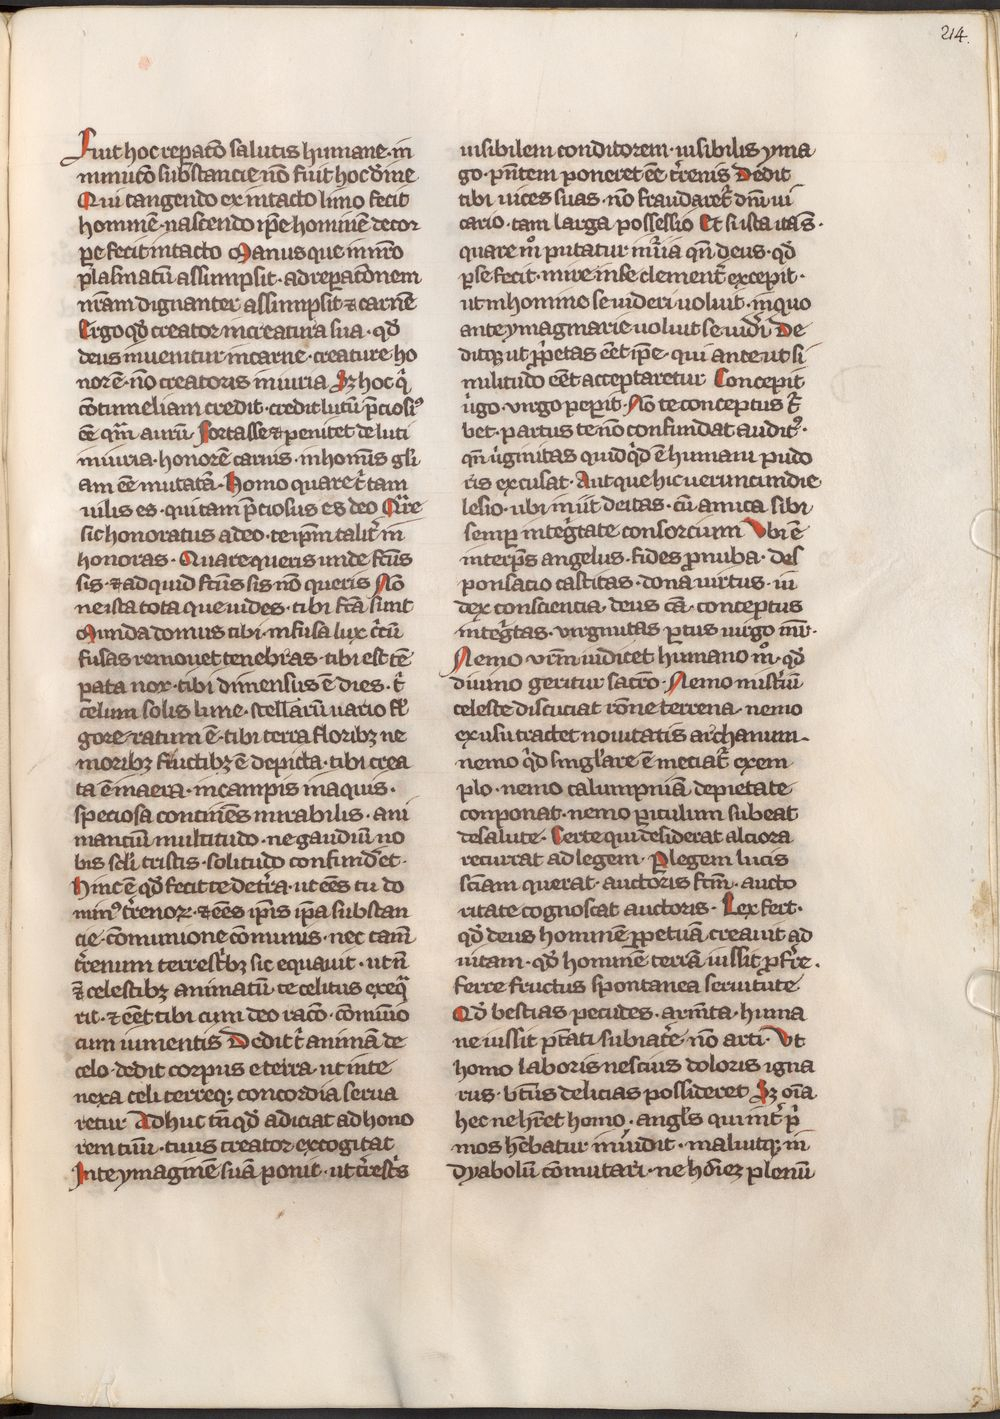 214.
Fuit hoc reparacō salutis humane· in
minucō substancie nō fuit hoc diuīe
Qui tangendo ex intacto limo fecit
hominē· nascendo ip̄e hominē de cor
pe fecit intacto Manus que in nr̄o
plasmatū assumpsit· ad reparacōnem
nrām dignanter assumpsit ⁊ carnē
Ergo qd̓ creator in creatura sua· qd̓
deus inuenitur in carne· creature ho
nor ē· nō creatoris iniuria Sꝫ hoc qͥ
cōtumeliam credit· credit lutū p̄ciosiꝰ
eē qm̄ aurū· Fortasse ⁊ penitet de luti
iniuria· honorē carnis· in homīs glī
am eē mutatā· Homo quare tͥ tam
uilis es· qui tam p̄ciosus es deo Qͣre
sic honoratus a deo· te ip̄m talit̓ in
honoras· Quare queris unde fc̄us
sis· ⁊ ad quid fc̄us sis nō queris Nō
ne ista tota que uides· tibi fc̄a sunt
Munda domus tibi· infusa lux cͬcū
fusas remouet tenebras· tibi est tē
pata nox· tibi dimensus ē dies· tͥ
celum solis lune· stellarū uario ful
gore ratum ē· tibi terra floribꝫ ne
moribꝫ fructibꝫ ē depicta· tibi crea
ta ē in aera· in campis in aquis·
speciosa continēs mirabilis· ani
mancium multitudo· ne gaudiū no
bis seli tristis· solitudo confunderet·
Hinc ē qd̓ fecit te de tr̄a· ut eēs tu do
minꝰ tr̓renoꝝ· ⁊ eēs ip̄is ip̄a substan
cie· cōmunione cōmunis· nec tam̄
tr̓renum terrestribꝫ sic equauit· ut nō
⁊ celestibꝫ animatū· te celitus exeqͣ
rit· ⁊ eēt tibi cum deo racō· cōmunio
cum iumentis Dedit tͥ animā de
celo· dedit corpus e terra· ut inte
nexa celi terreqꝫ concordia serua
retur Adhuc tn̄ qd̓ adiciat ad hono
rem tuū· tuus creator excogitat
In te ymaginē suā ponit· ut tr̓rest̓s
uisibilem conditorem· uisibilis yma
go· pn̄tem poneret eē tr̓renis Dedit
tibi uices suas· nō fraudaret̓ dn̄i ui
cario· tam larga possessio Et si ista ita s̄·
quare mͦ putatur iniͬia qn̄ deus· qd̓
p se fecit· mire in se clement̓ excepit·
ut in homine se uideri uoluit· in quo
ante ymaginarie uoluit se uid̓ri De
ditqꝫ ut p̄petas eēt ip̄e· qui ante ut si
militudo eēt acceptaretur Concepit
uͥgo· virgo peperit· Nō te conceptus tͬ
bet· partus te nō confundat auditꝰ·
qn̄ uͥginitas quid qͥd ē humani pudo
ris excusat· Aut que hic uerūcundie
lesio· ubi iniit deitas· cū amica sibi
semp integͥtate consorcium Vbi ē
interp̄s angelus· fides pronuba· des
ponsacio castitas· dona uirtus· iu
dex consciencia· deus cā· conceptus
integͥtas· virginitas ptus uirgo mr̄·
Nemo vrm̄ iudicet humano mͦ· qd̓
diuino geritur sacrō· Nemo mist̓iū
celeste discuciat rōne terrena· nemo
ex usu tractet nouitatis archanum·
nemo qͥd singl̓are ē meciat̓ exem
plo· nemo calumpniā de pietate
componat· nemo piculum subeat
de salute· Certe qui desiderat alciora
recurrat ad legem· P legem lucis
sciam querat· auctoris fc̄m· aucto
ritate cognoscat auctoris· Lex fert·
qd̓ deus hominē ppetuā creauit ad
uitam· qd̓ hominē terrā iussit p fr̄re·
ferre fructus spontanea seruitute
Qd̓ bestias pecudes· arm̄ta· huma
ne iussit ptāti subiac̓e· nō arti· Vt
homo laboris nescius doloris igna
rus· btūs delicias possideret Sꝫ oīa
hec ne hr̄et homo· angl̓s qui int̓ pͥ
mos hēbatur inuidit· maluitqꝫ in
dyabolū cōmutari· ne hoīeꝫ plenū